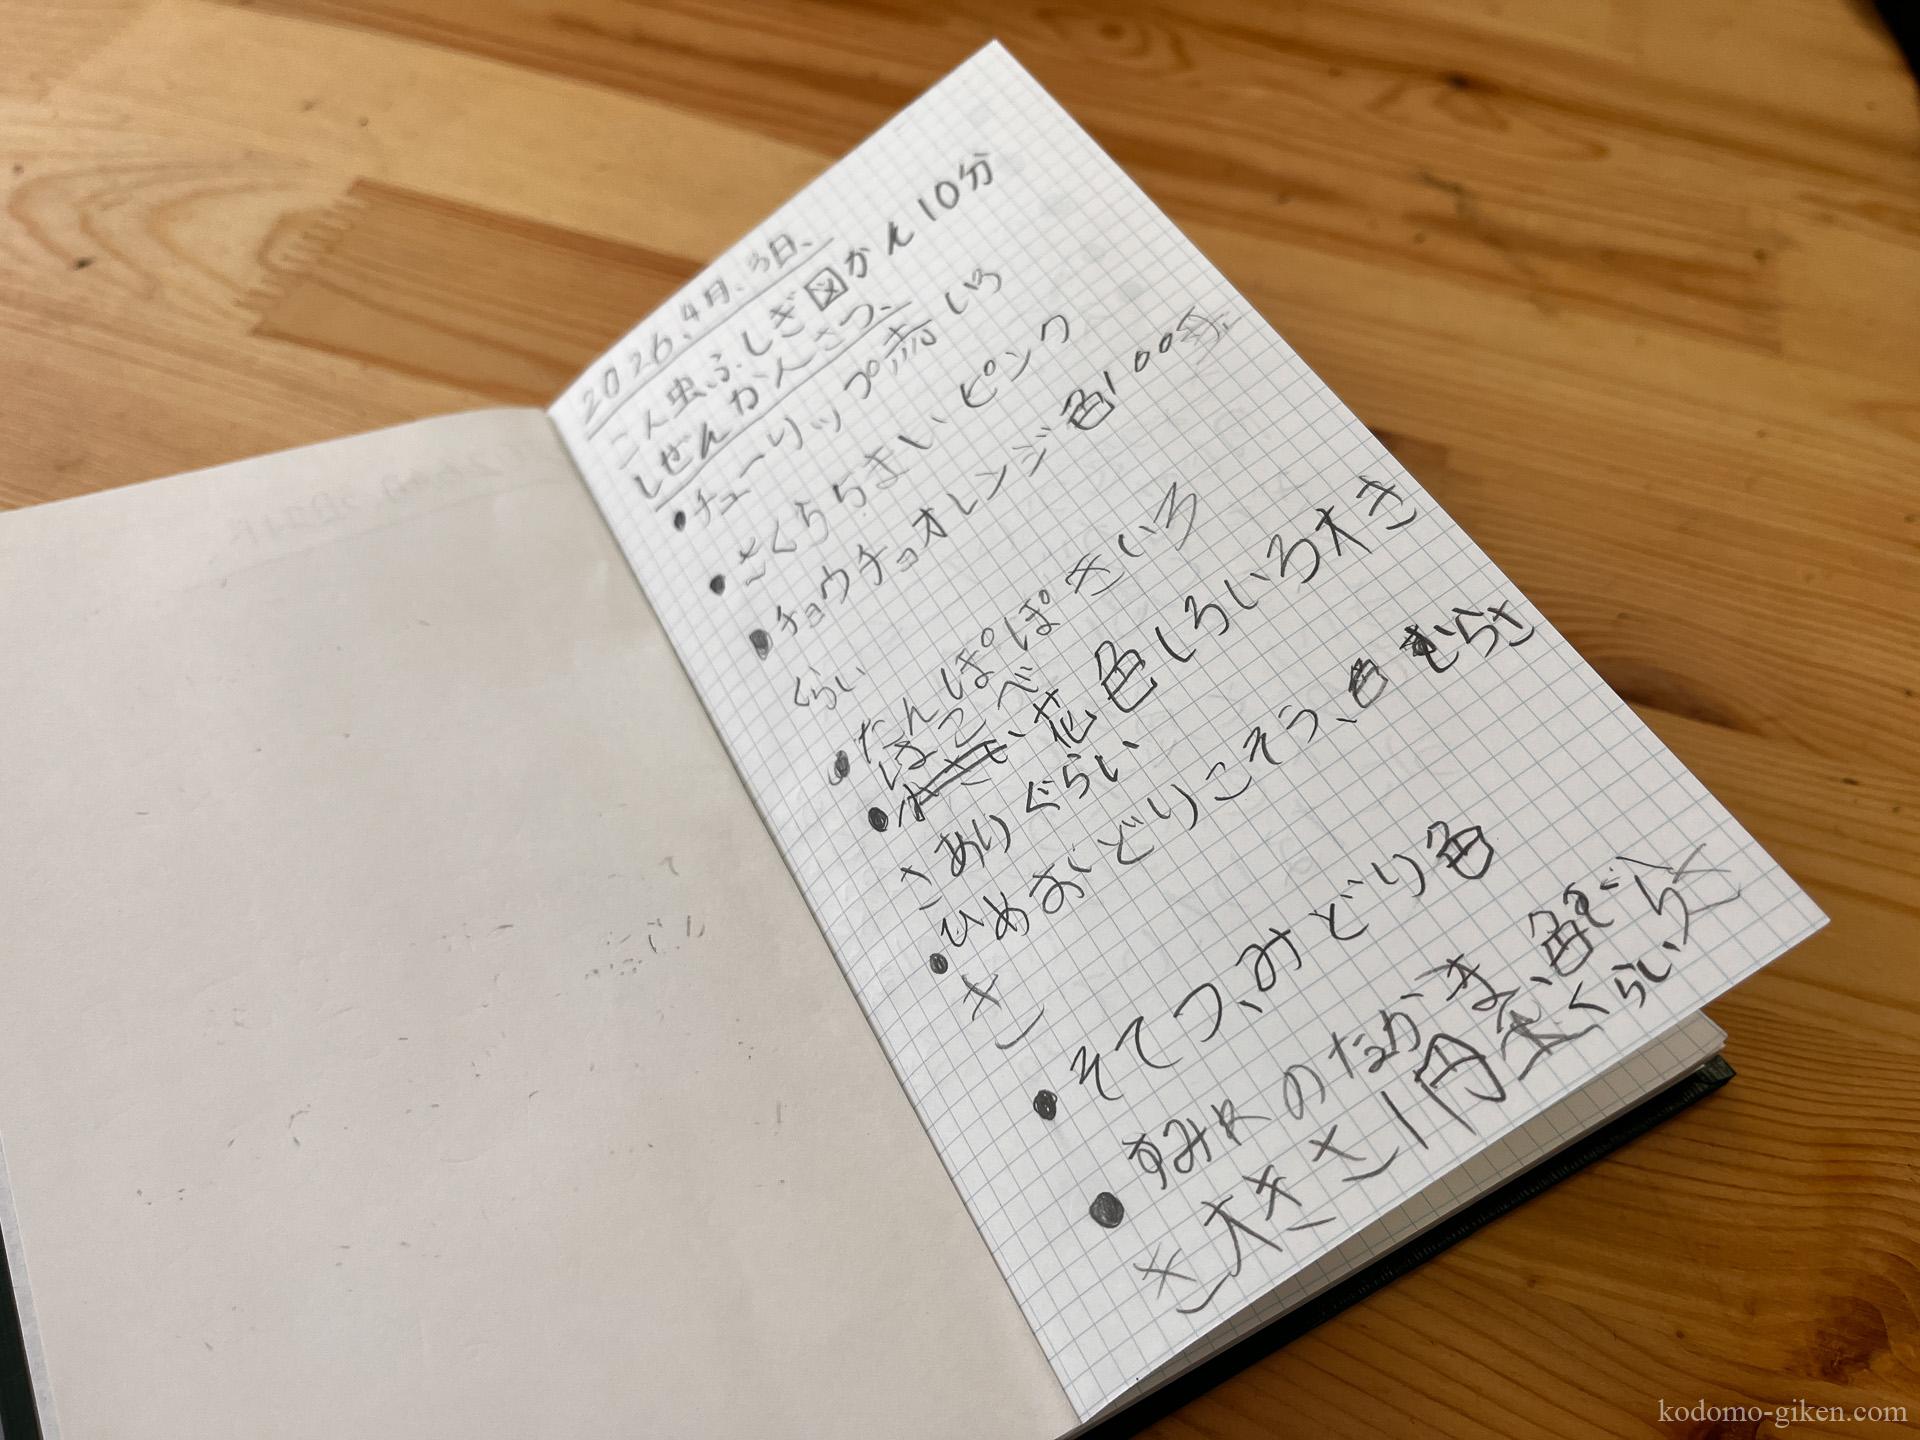 2026、4月、3日、
こん虫ふしぎ図かん10分
しぜんかんさつ、
●チューリップ赤いろ
●さくらちまいピンク
●チョウチョオレンジ色100円
くらい
●たんぽぽきいろ
はこべ
●い花色しろいろ大き
さありぐらい
●ひめおどりこそう、色むらさ
き
●そてつ、みどり色
●すみれのたがま、色むらさ
き大きさ1円玉くらい
kodomo-giken.com